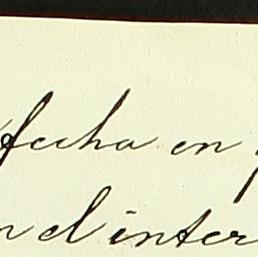 fecha en
n el inter